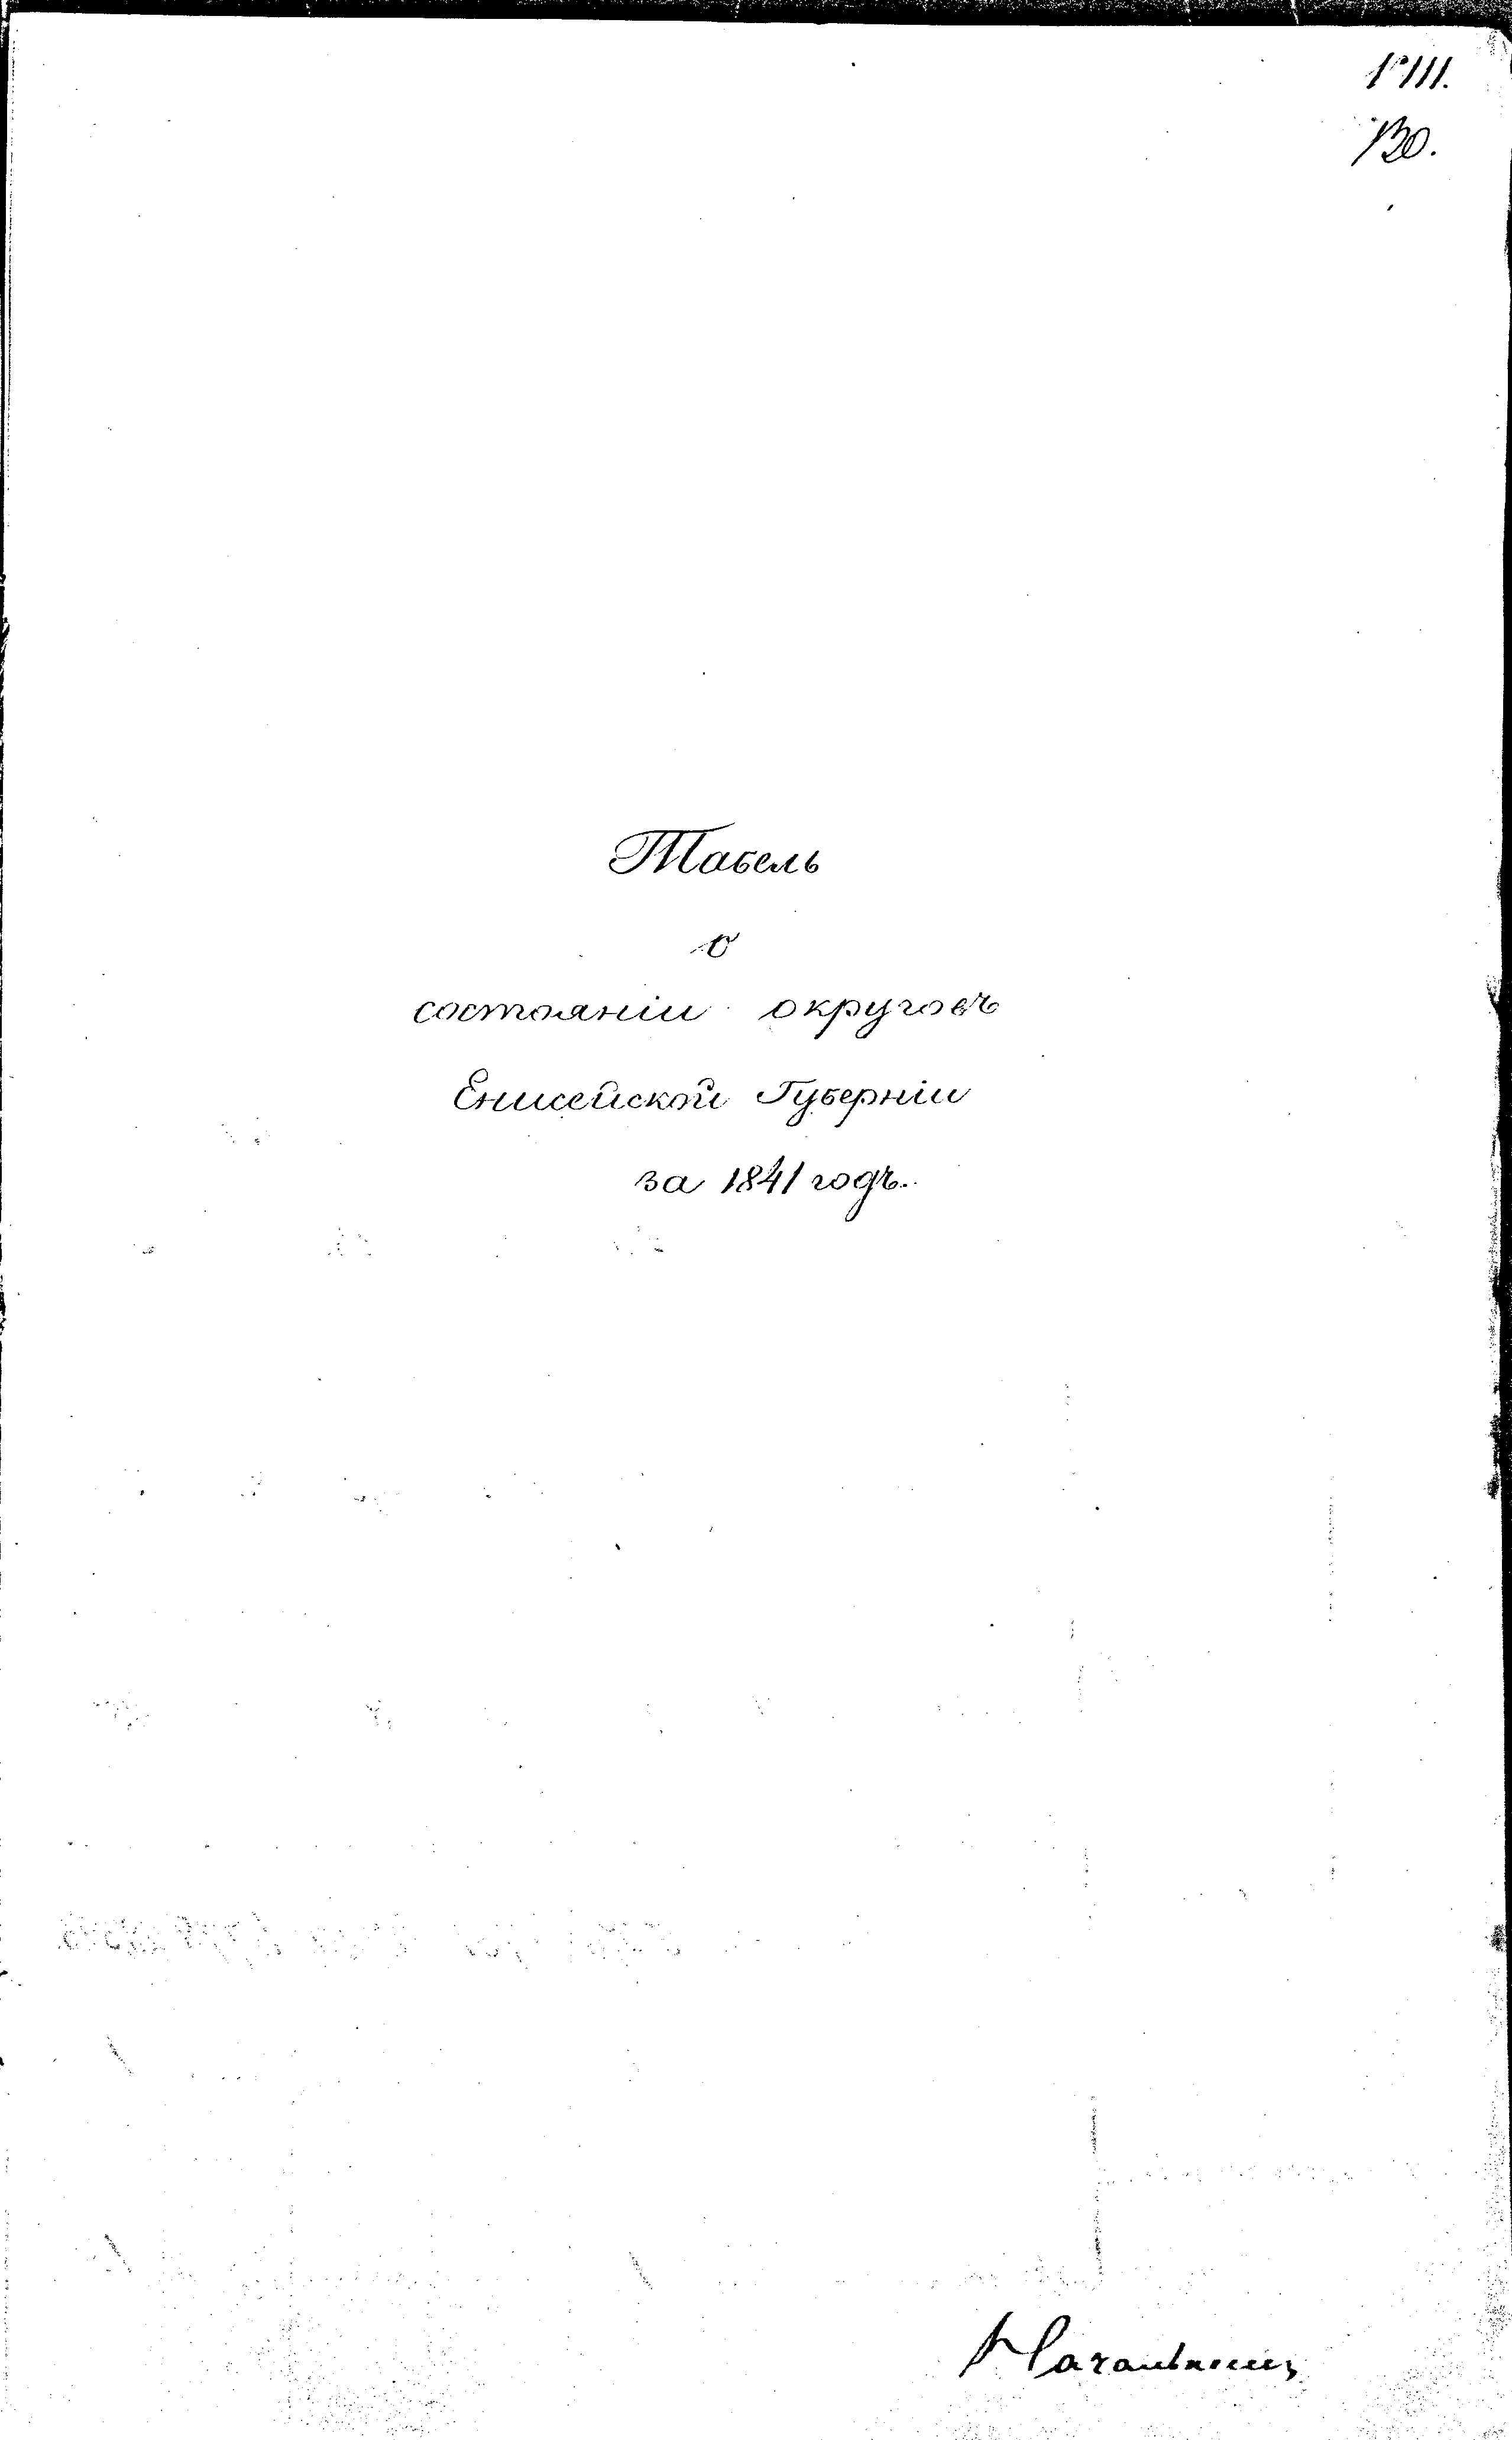 130.
Табель
о
состояніи округовъ
Енисейской Губерніи
за 1841 годъ.
Начальникъ